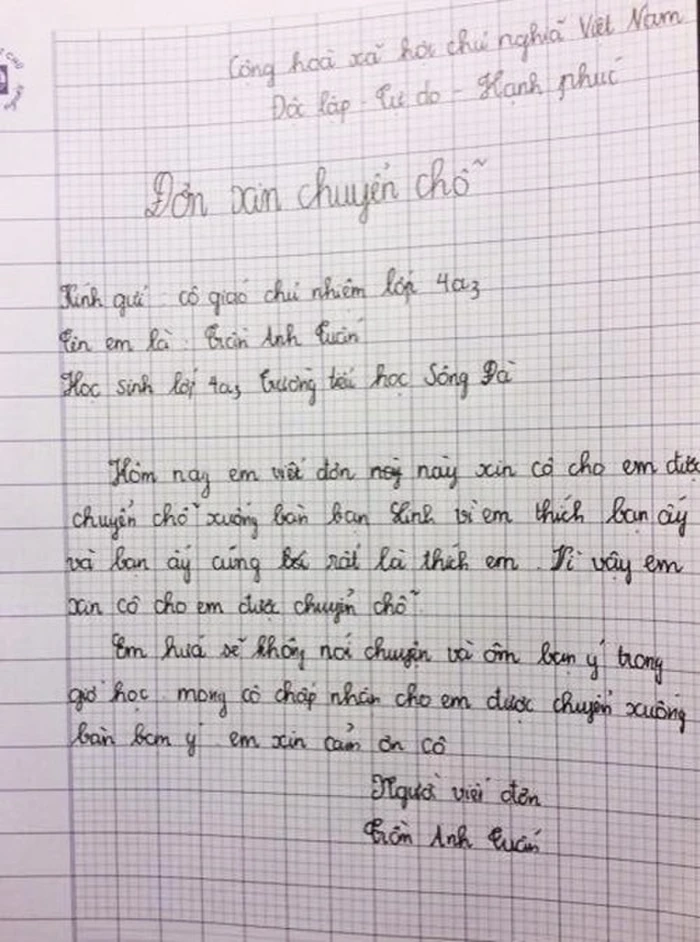 Cộng hoà xã hôi chủ nghĩa Việt Nam
Đôc lâp - Tự do - Hạnh phúc
Đơn xin chuyển chỗ
Kính gửi cô giáo chủ nhiệm lớp 4a3
Tên em là : Trần Anh Tuấn
Học sinh lớp 4a3 trường tiểu học Sông Đà
Hôm nay em viết đơn này xin cô cho em được
chuyển chỗ xuống bàn bạn Linh vì em thích bạn ấy
và bạn ấy cũng rất là thích em. Vì vậy em
xin cô cho em được chuyển chỗ.
Em hứa sẽ không nói chuyện và ôm bạn ý trong
giờ học. mong cô chấp nhân cho em được chuyển xuống
bàn bạn ý em xin cảm ơn cô
Người viết đơn
Trần Anh Tuấn